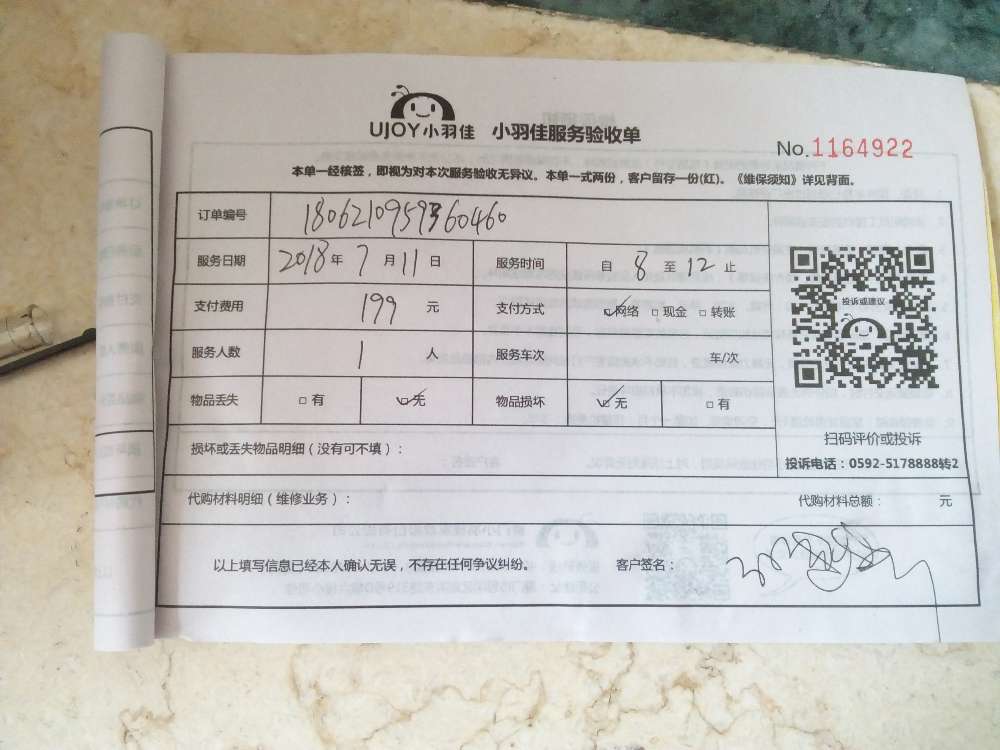 UJOY小羽佳 小羽佳服务验收单
No.1164922
本单一经核签，即视为对本次服务验收无异议。本单一式两份，客户留存一份(红)。《维保须知》详见背面。
订单编号
服务日期 2018年7月11日 服务时间 自8至12止
支付费用 199元 支付方式 ☑网络 □现金 □转账
服务人数 1人 服务车次 车/次
物品丢失 □有 ☑无 物品损坏 ☑无 □有
投诉或建议
扫码评价或投诉
投诉电话：0592-5178888转2
损坏或丢失物品明细（没有可不填）：
代购材料明细（维修业务）： 代购材料总额： 元
以上填写信息已经本人确认无误，不存在任何争议纠纷。 客户签名：